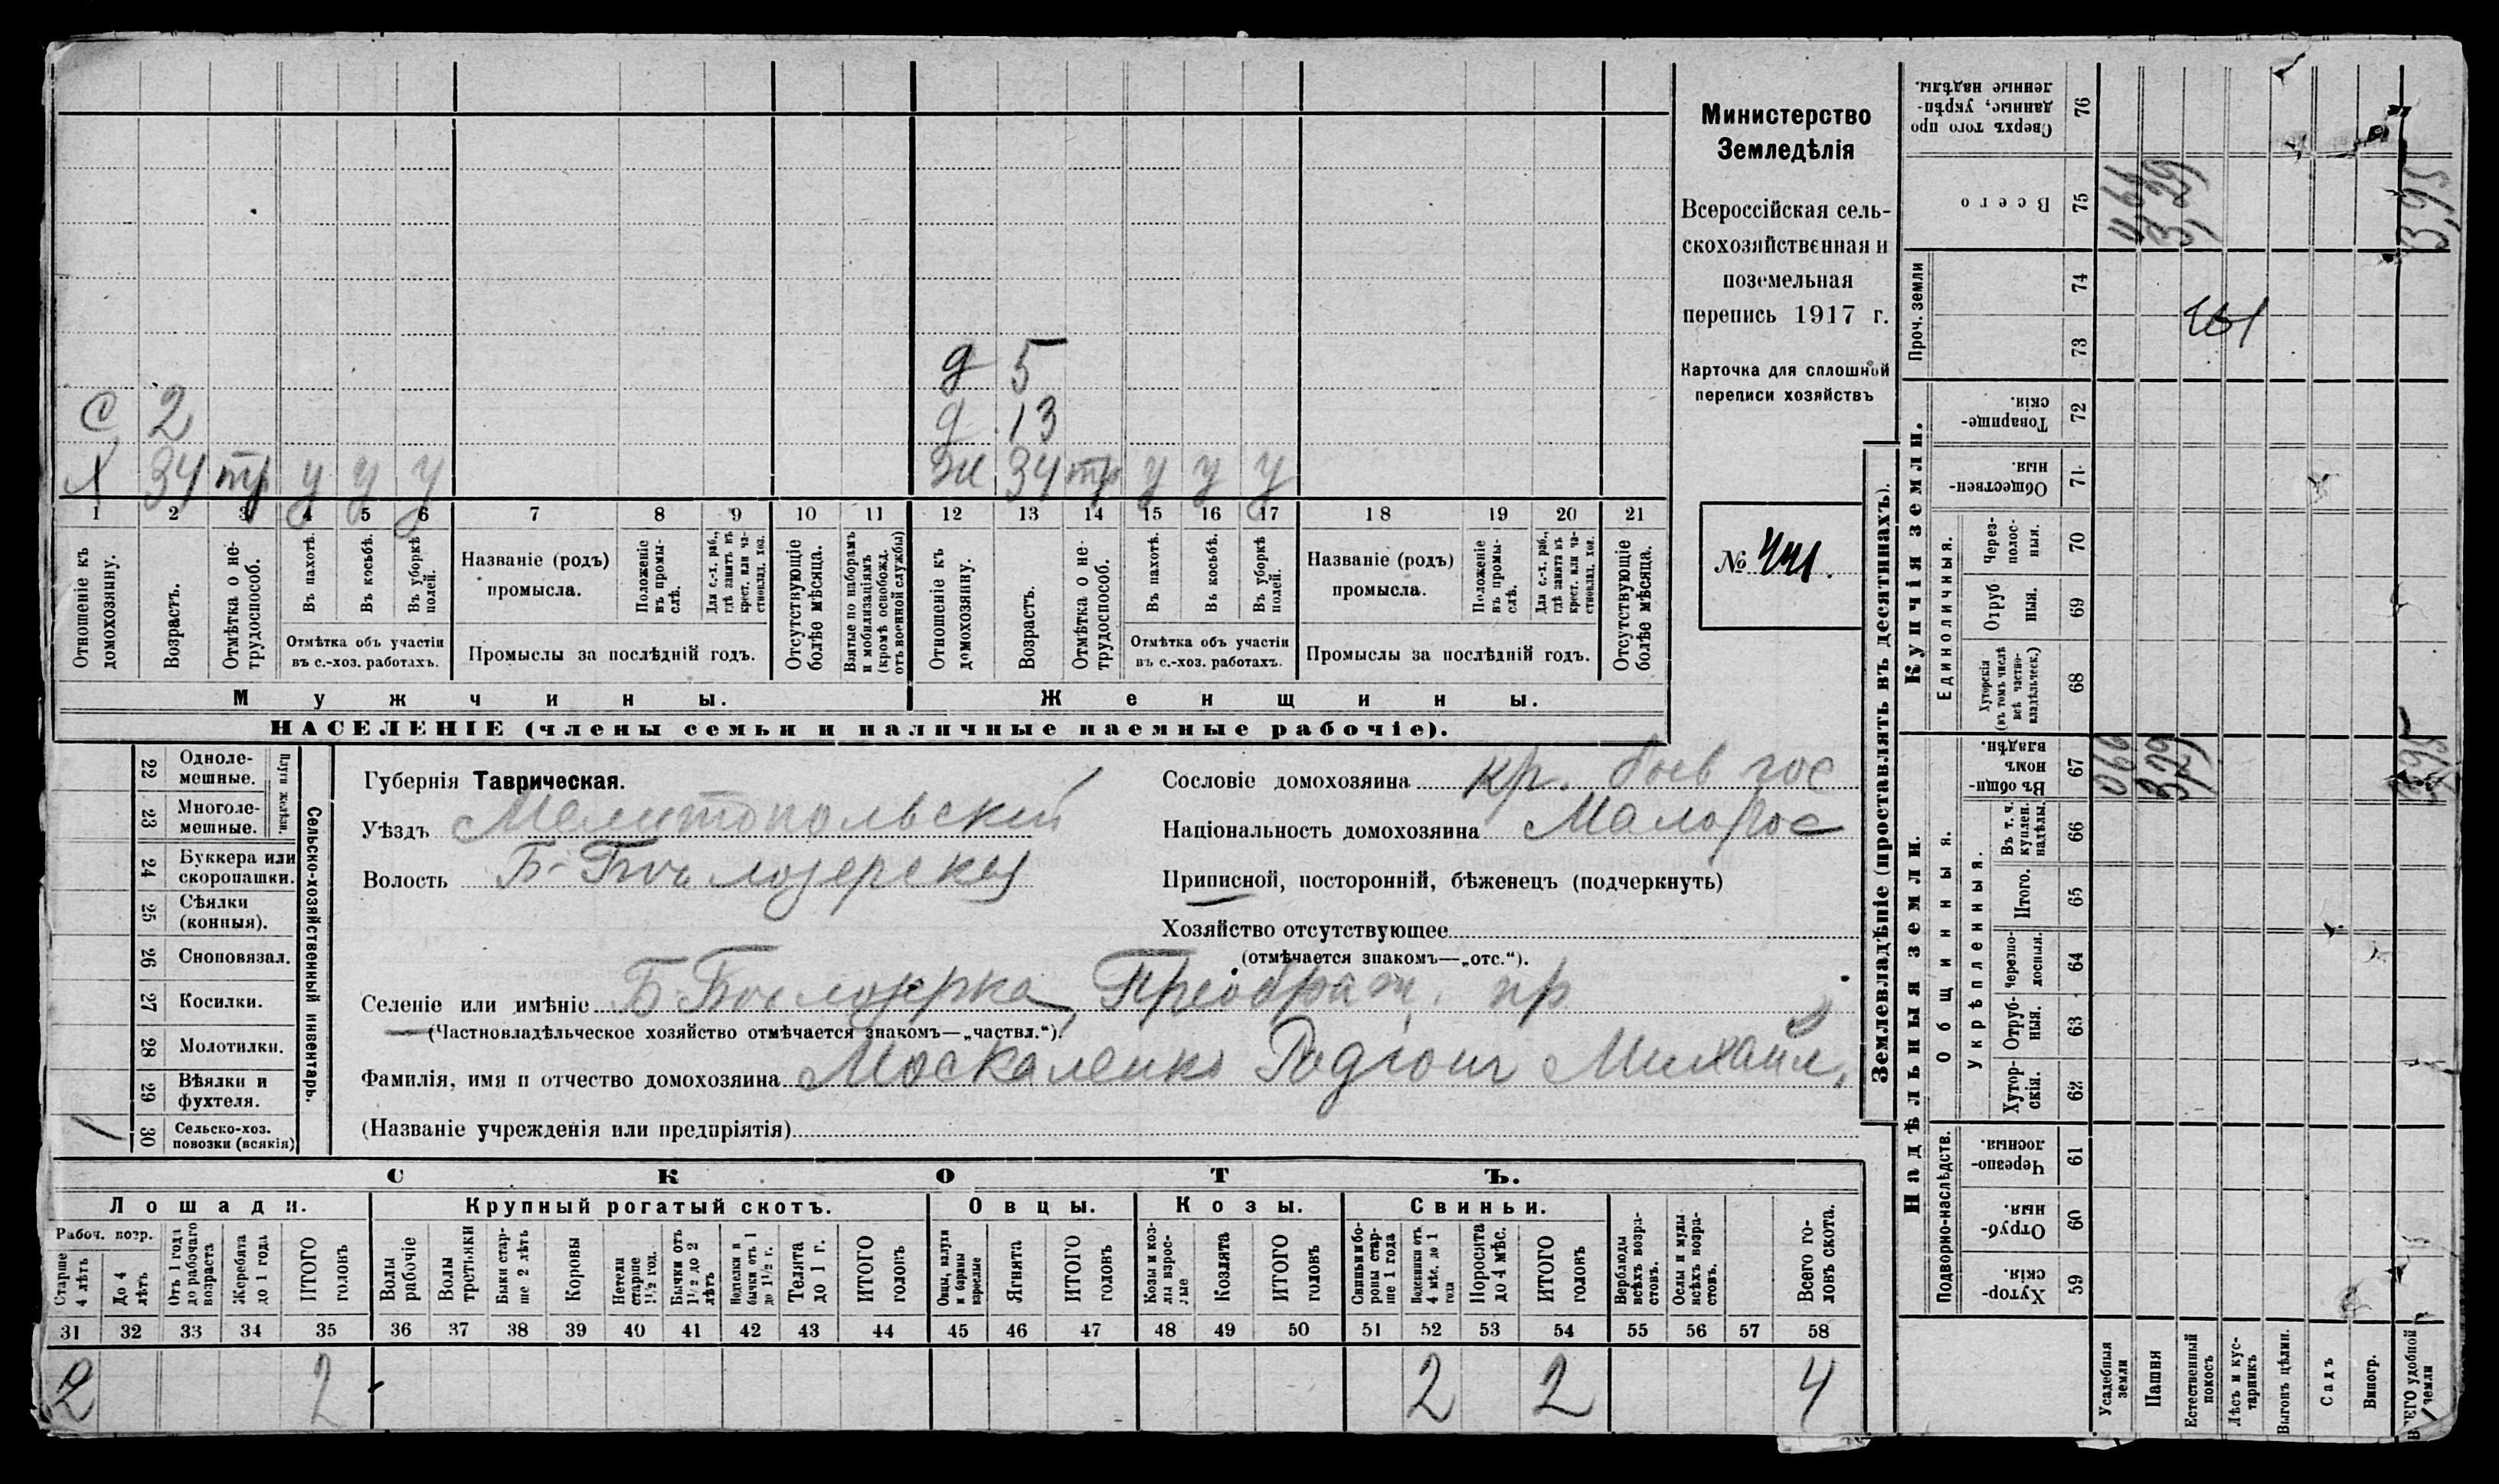 Министерство
Земледѣлія
Всероссійская сель-
скохозяйственная и
поземельная
перепись 1917 г.
Карточка для сплошной
переписи хозяйствъ
№ 441.
д 5
С 2 д 13
Х 34 тр у у у Жи 34 тр у у у
1 2 3 4 5 6 7 8 9 10 11 12 13 14 15 16 17 18 19 20 21
Отношеніе къ домохозяину.
Возрастъ.
Отмѣтка о не-трудоспособ.
Въ пахотѣ.
Въ косьбѣ.
Въ уборкѣ полей.
Отмѣтка объ участіи
въ с.-хоз. работахъ.
Названіе (родъ)
промысла.
Положеніе въ промы-слѣ.
Для с.-х. раб., гдѣ занятъ въ крест. или ча-стновлад. хоз.
Промыслы за послѣдній годъ.
Отсутствующіе болѣе мѣсяца.
Взятые по наборамъ и мобилизаціямъ (кромѣ освобожд. отъ военной службы)
Отношеніе къ домохозяину.
Возрастъ.
Отмѣтка о не-трудоспособ.
Въ пахотѣ.
Въ косьбѣ.
Въ уборкѣ полей.
Отмѣтка объ участіи
въ с.-хоз. работахъ.
Названіе (родъ)
промысла.
Положеніе въ промы-слѣ.
Для с.-х. раб., гдѣ занята въ крест. или ча-стновлад. хоз.
Промыслы за послѣдній годъ.
Отсутствующіе болѣе мѣсяца.
Мужчины. Женщины.
НАСЕЛЕНІЕ (члены семьи и наличные наемные рабочіе).
22 Одноле-мешные.
23 Многоле-мешные.
Плуги желѣзн.
24 Буккера или скоропашки.
25 Сѣялки (конныя).
26 Сноповязал.
27 Косилки.
28 Молотилки.
29 Вѣялки и фухтеля.
1 30 Сельско-хоз. повозки (всякія)
Сельско-хозяйственный инвентарь.
Губернія Таврическая.
Уѣздъ Мелитопольскій
Волость Б-Бѣлозерская
Сословіе домохозяина кр. быв гос
Національность домохозяина Малорос
Приписной, посторонній, бѣженецъ (подчеркнуть)
Хозяйство отсутствующее
(отмѣчается знакомъ—„отс.“).
Селеніе или имѣніе Б Бѣлозерка, Преображ. пр
(Частновладѣльческое хозяйство отмѣчается знакомъ—„частвл.“).
Фамилія, имя и отчество домохозяина Москаленко Родіон Михайл.
(Названіе учрежденія или предпріятія)
СКОТЪ.
Лошади. Крупный рогатый скотъ. Овцы. Козы. Свиньи.
Рабоч. возр.
Старше 4 лѣтъ
До 4 лѣтъ
Отъ 1 года до рабочаго возраста
Жеребята до 1 года
ИТОГО головъ
Волы рабочіе
Волы третьяки
Быки стар-ше 2 лѣтъ
Коровы
Нетели старше 1½ год.
Бычки отъ 1½ до 2 лѣтъ
Нетелки и бычки отъ 1 до 1½ г.
Телята до 1 г.
ИТОГО головъ
Овцы, валухи и бараны взрослые
Ягнята
ИТОГО головъ
Козы и коз-лы взрос-лые
Козлята
ИТОГО головъ
Свиньи и бо-ровы стар-ше 1 года
Подсвинки отъ 4 мѣс. до 1 года
Поросята до 4 мѣс.
ИТОГО головъ
Верблюды всѣхъ возра-стовъ.
Ослы и мулы всѣхъ возра-стовъ.
Всего го-ловъ скота.
31 32 33 34 35 36 37 38 39 40 41 42 43 44 45 46 47 48 49 50 51 52 53 54 55 56 57 58
2 2 2 2 4
Землевладѣніе (проставлять въ десятинахъ).
Надѣльныя земли.
Купчія земли.
Проч. земли
Подворно-наслѣдств.
Общинныя.
Укрѣпленныя.
Единоличныя.
59 Хутор-скія.
60 Отруб-ныя.
61 Черезпо-лосныя.
62 Хутор-скія.
63 Отруб-ныя.
64 Черезпо-лосныя.
65 Итого.
66 Въ т. ч. куплен. надѣлы.
67 Въ общи-номъ владѣн. 066 329 395
68 Хуторскія (въ томъ числѣ всѣ частно-владѣльческ.)
69 Отруб ныя.
70 Через-полос-ныя.
71 Обществен-ныя.
72 Товарище-скія.
73
74
75 Всего 0,66 3,29 3,95
76 Сверхъ того про данные, укрѣп-ленные надѣлы.
Усадебныя земли
Пашня
Естественный покосъ
Лѣсъ и кус-тарникъ
Выгонъ цѣлин.
Садъ
Виногр.
ВСЕГО удобной земли